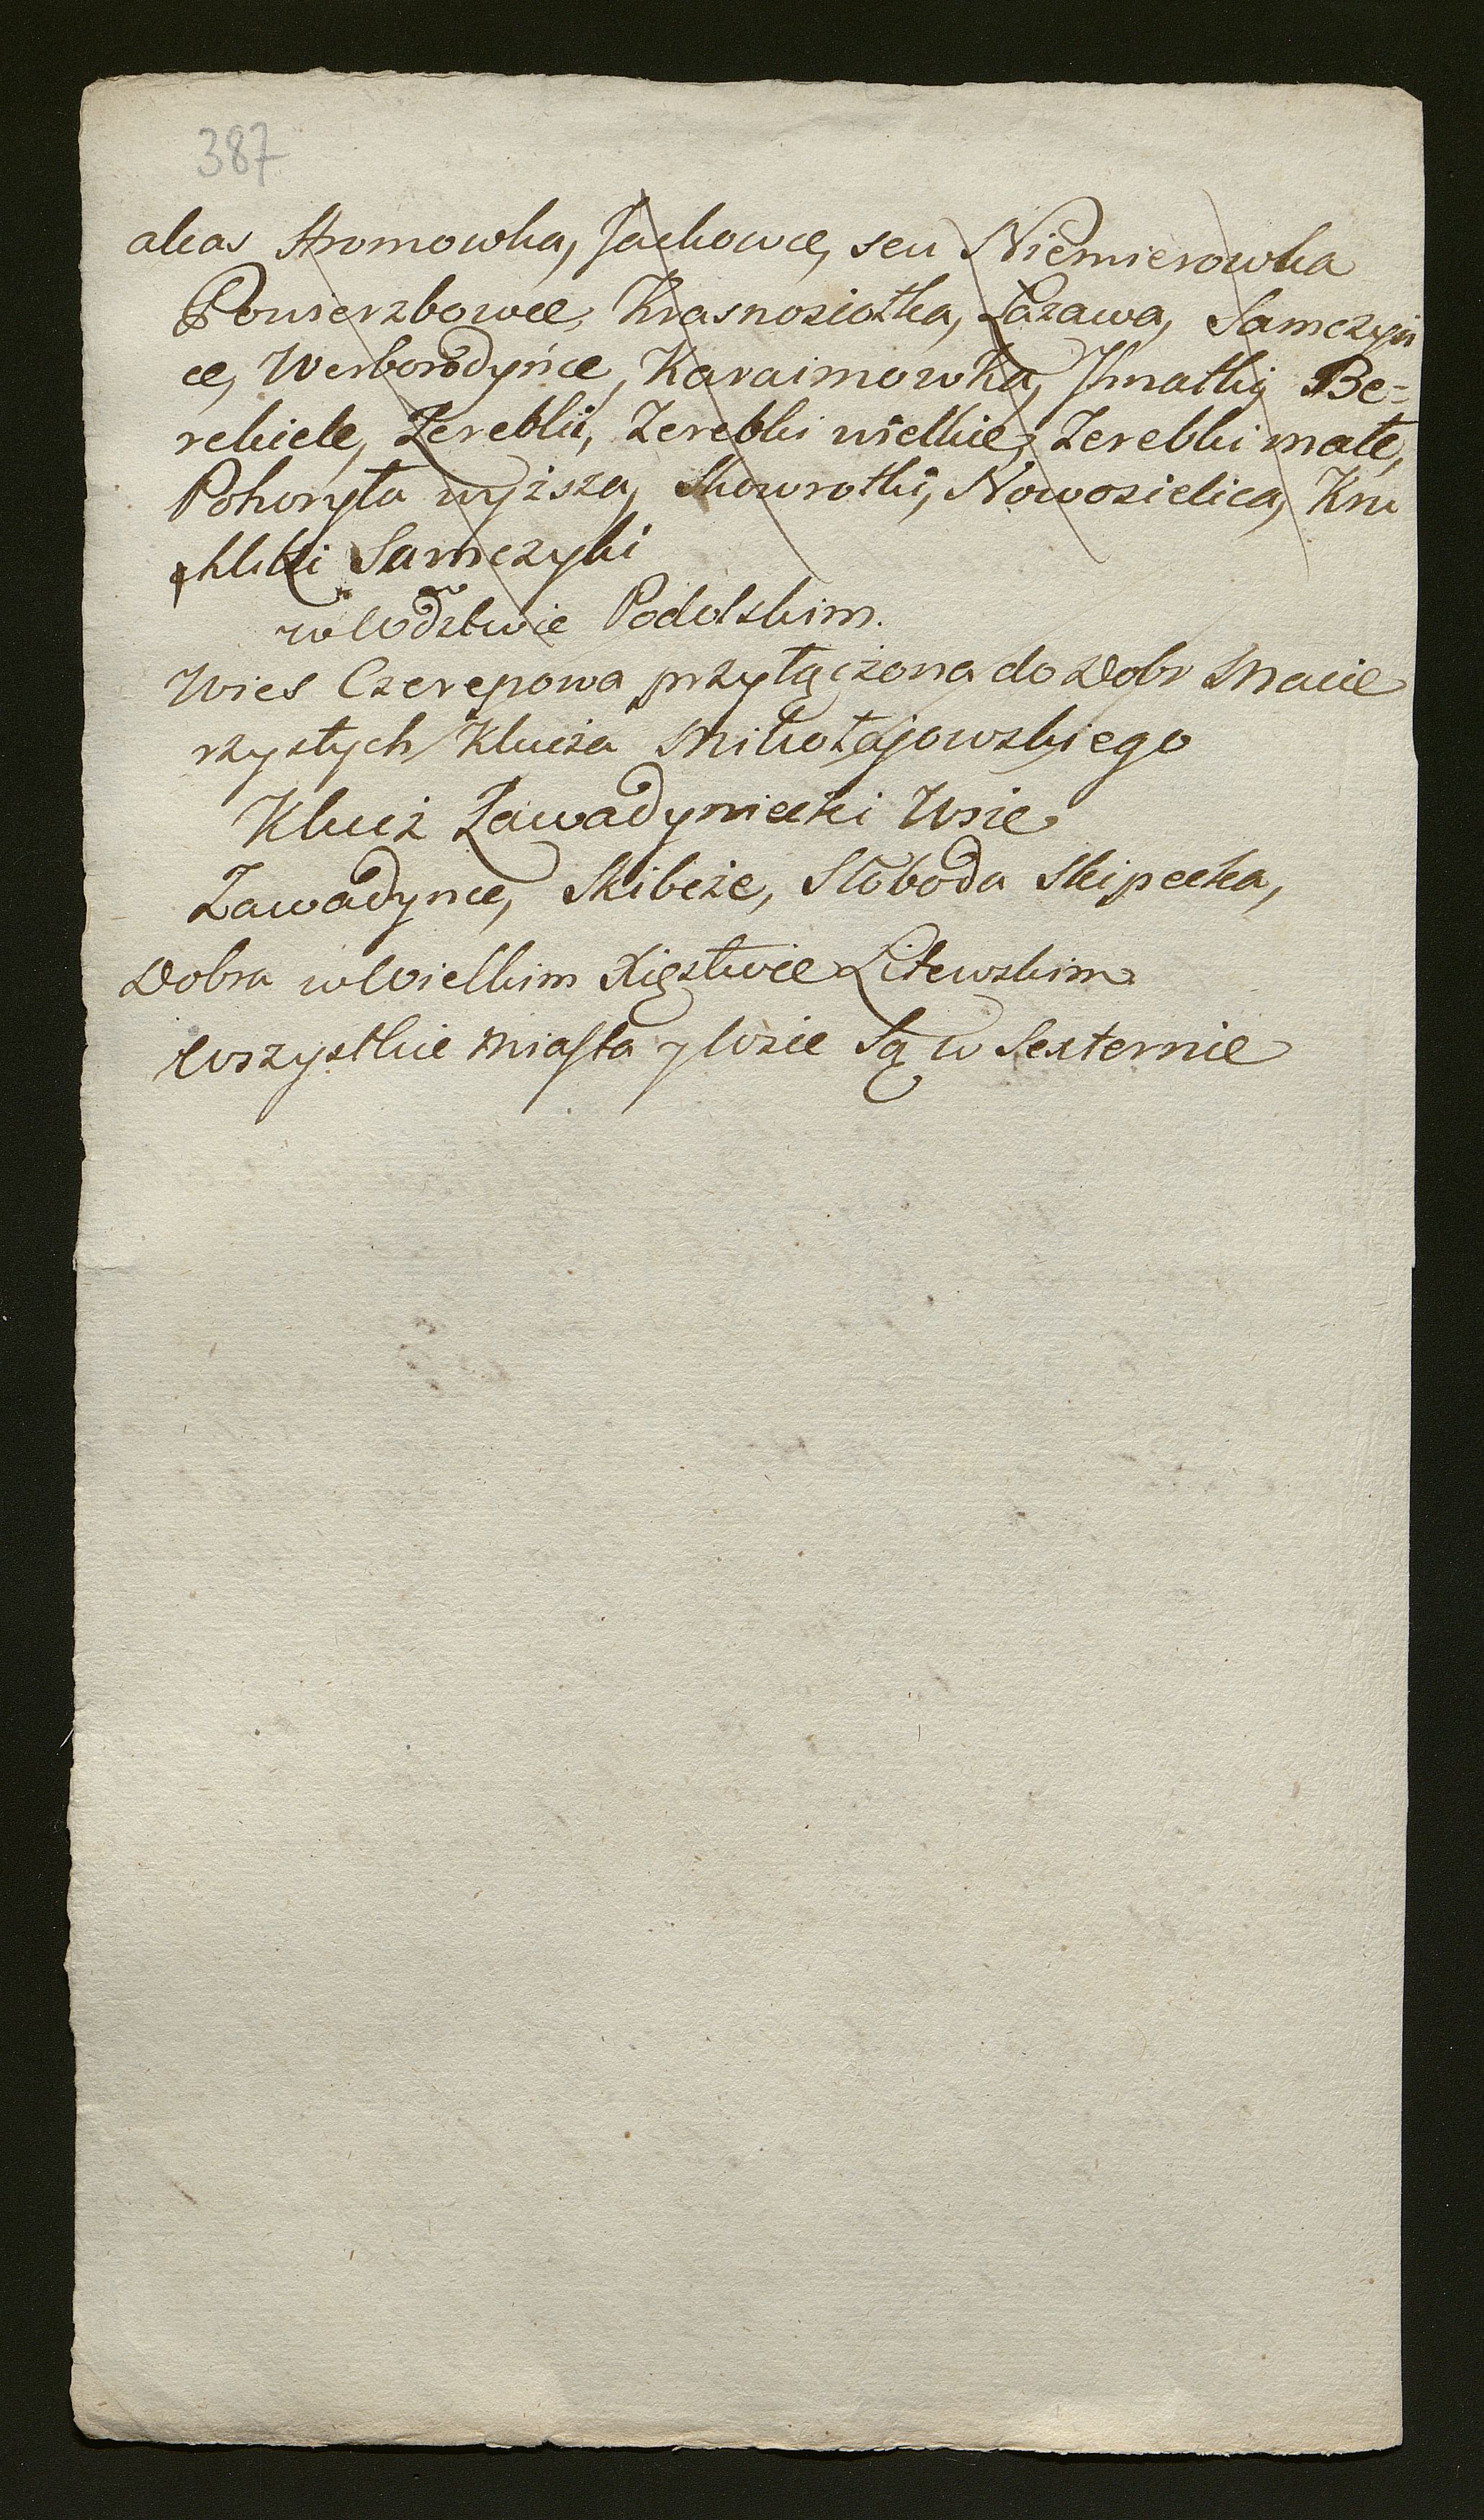 387
alias Hromowka, Jachowce, seu Niemierowka
Powierzbowce, Krasnosiołka, Łazawa, Samczyń
ce, Werborodyńce, Karaimowka, Hnatki, Be-
rehiele, Zerebki, Zerebki wielkie, Zerebki małe,
Pohoryła wyższa, Skowrotki, Nowosielica, Kru
Samczyki
w Wodztwie Podolskim.
Wies Czerepowa przyłączona do Dobr Macie
rzystych Klucza Mikołajowskiego
Klucz Zawadyniecki Wsie
Zawadynce, Skibcze, Słoboda Skipecka,
Dobra w Wielkim Xięstwie Litewskim
wszystkie Miasta y Wsie Są w Sexternie